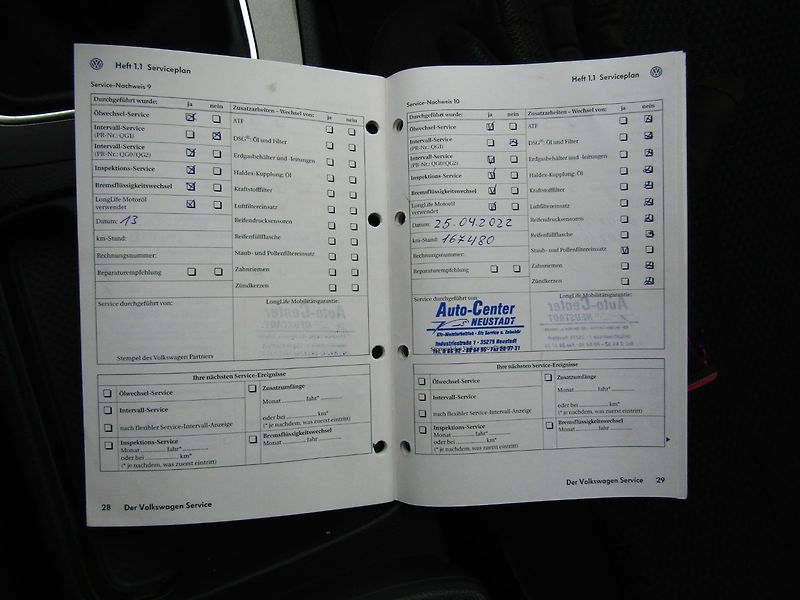 Heft 1.1 Serviceplan
Service-Nachweis 9
Durchgeführt wurde: ja nein
Ölwechsel-Service
Intervall-Service
(PR-Nr.: QG1)
Intervall-Service
(PR-Nr.: QG0/QG2)
Inspektions-Service
Bremsflüssigkeitswechsel
LongLife Motoröl
verwendet
Datum: 13
km-Stand:
Rechnungsnummer:
Reparaturempfehlung
Zusatzarbeiten – Wechsel von: ja nein
ATF
DSG®: Öl und Filter
Erdgasbehälter und -leitungen
Haldex-Kupplung: Öl
Kraftstofffilter
Luftfiltereinsatz
Reifendrucksensoren
Reifenfüllflasche
Staub- und Pollenfiltereinsatz
Zahnriemen
Zündkerzen
Service durchgeführt von:
LongLife Mobilitätsgarantie:
Stempel des Volkswagen Partners
Ihre nächsten Service-Ereignisse
Ölwechsel-Service
Intervall-Service
nach flexibler Service-Intervall-Anzeige
Inspektions-Service
Monat Jahr*
oder bei km*
(* je nachdem, was zuerst eintritt)
Zusatzumfänge
Monat Jahr*
oder bei km*
(* je nachdem, was zuerst eintritt)
Bremsflüssigkeitswechsel
Monat Jahr
28 Der Volkswagen Service
Heft 1.1 Serviceplan
Service-Nachweis 10
Durchgeführt wurde: ja nein
Ölwechsel-Service
Intervall-Service
(PR-Nr.: QG1)
Intervall-Service
(PR-Nr.: QG0/QG2)
Inspektions-Service
Bremsflüssigkeitswechsel
LongLife Motoröl
verwendet
Datum: 25.04.2022
km-Stand: 167480
Rechnungsnummer:
Reparaturempfehlung
Zusatzarbeiten – Wechsel von: ja nein
ATF
DSG®: Öl und Filter
Erdgasbehälter und -leitungen
Haldex-Kupplung: Öl
Kraftstofffilter
Luftfiltereinsatz
Reifendrucksensoren
Reifenfüllflasche
Staub- und Pollenfiltereinsatz
Zahnriemen
Zündkerzen
Service durchgeführt von:
Auto-Center
NEUSTADT
Kfz-Meisterbetrieb - Kfz Service u. Zubehör
Industriestraße 1 - 35279 Neustadt
LongLife Mobilitätsgarantie:
Ihre nächsten Service-Ereignisse
Ölwechsel-Service
Intervall-Service
nach flexibler Service-Intervall-Anzeige
Inspektions-Service
Monat Jahr*
oder bei km*
(* je nachdem, was zuerst eintritt)
Zusatzumfänge
Monat Jahr*
oder bei km*
(* je nachdem, was zuerst eintritt)
Bremsflüssigkeitswechsel
Monat Jahr
Der Volkswagen Service 29